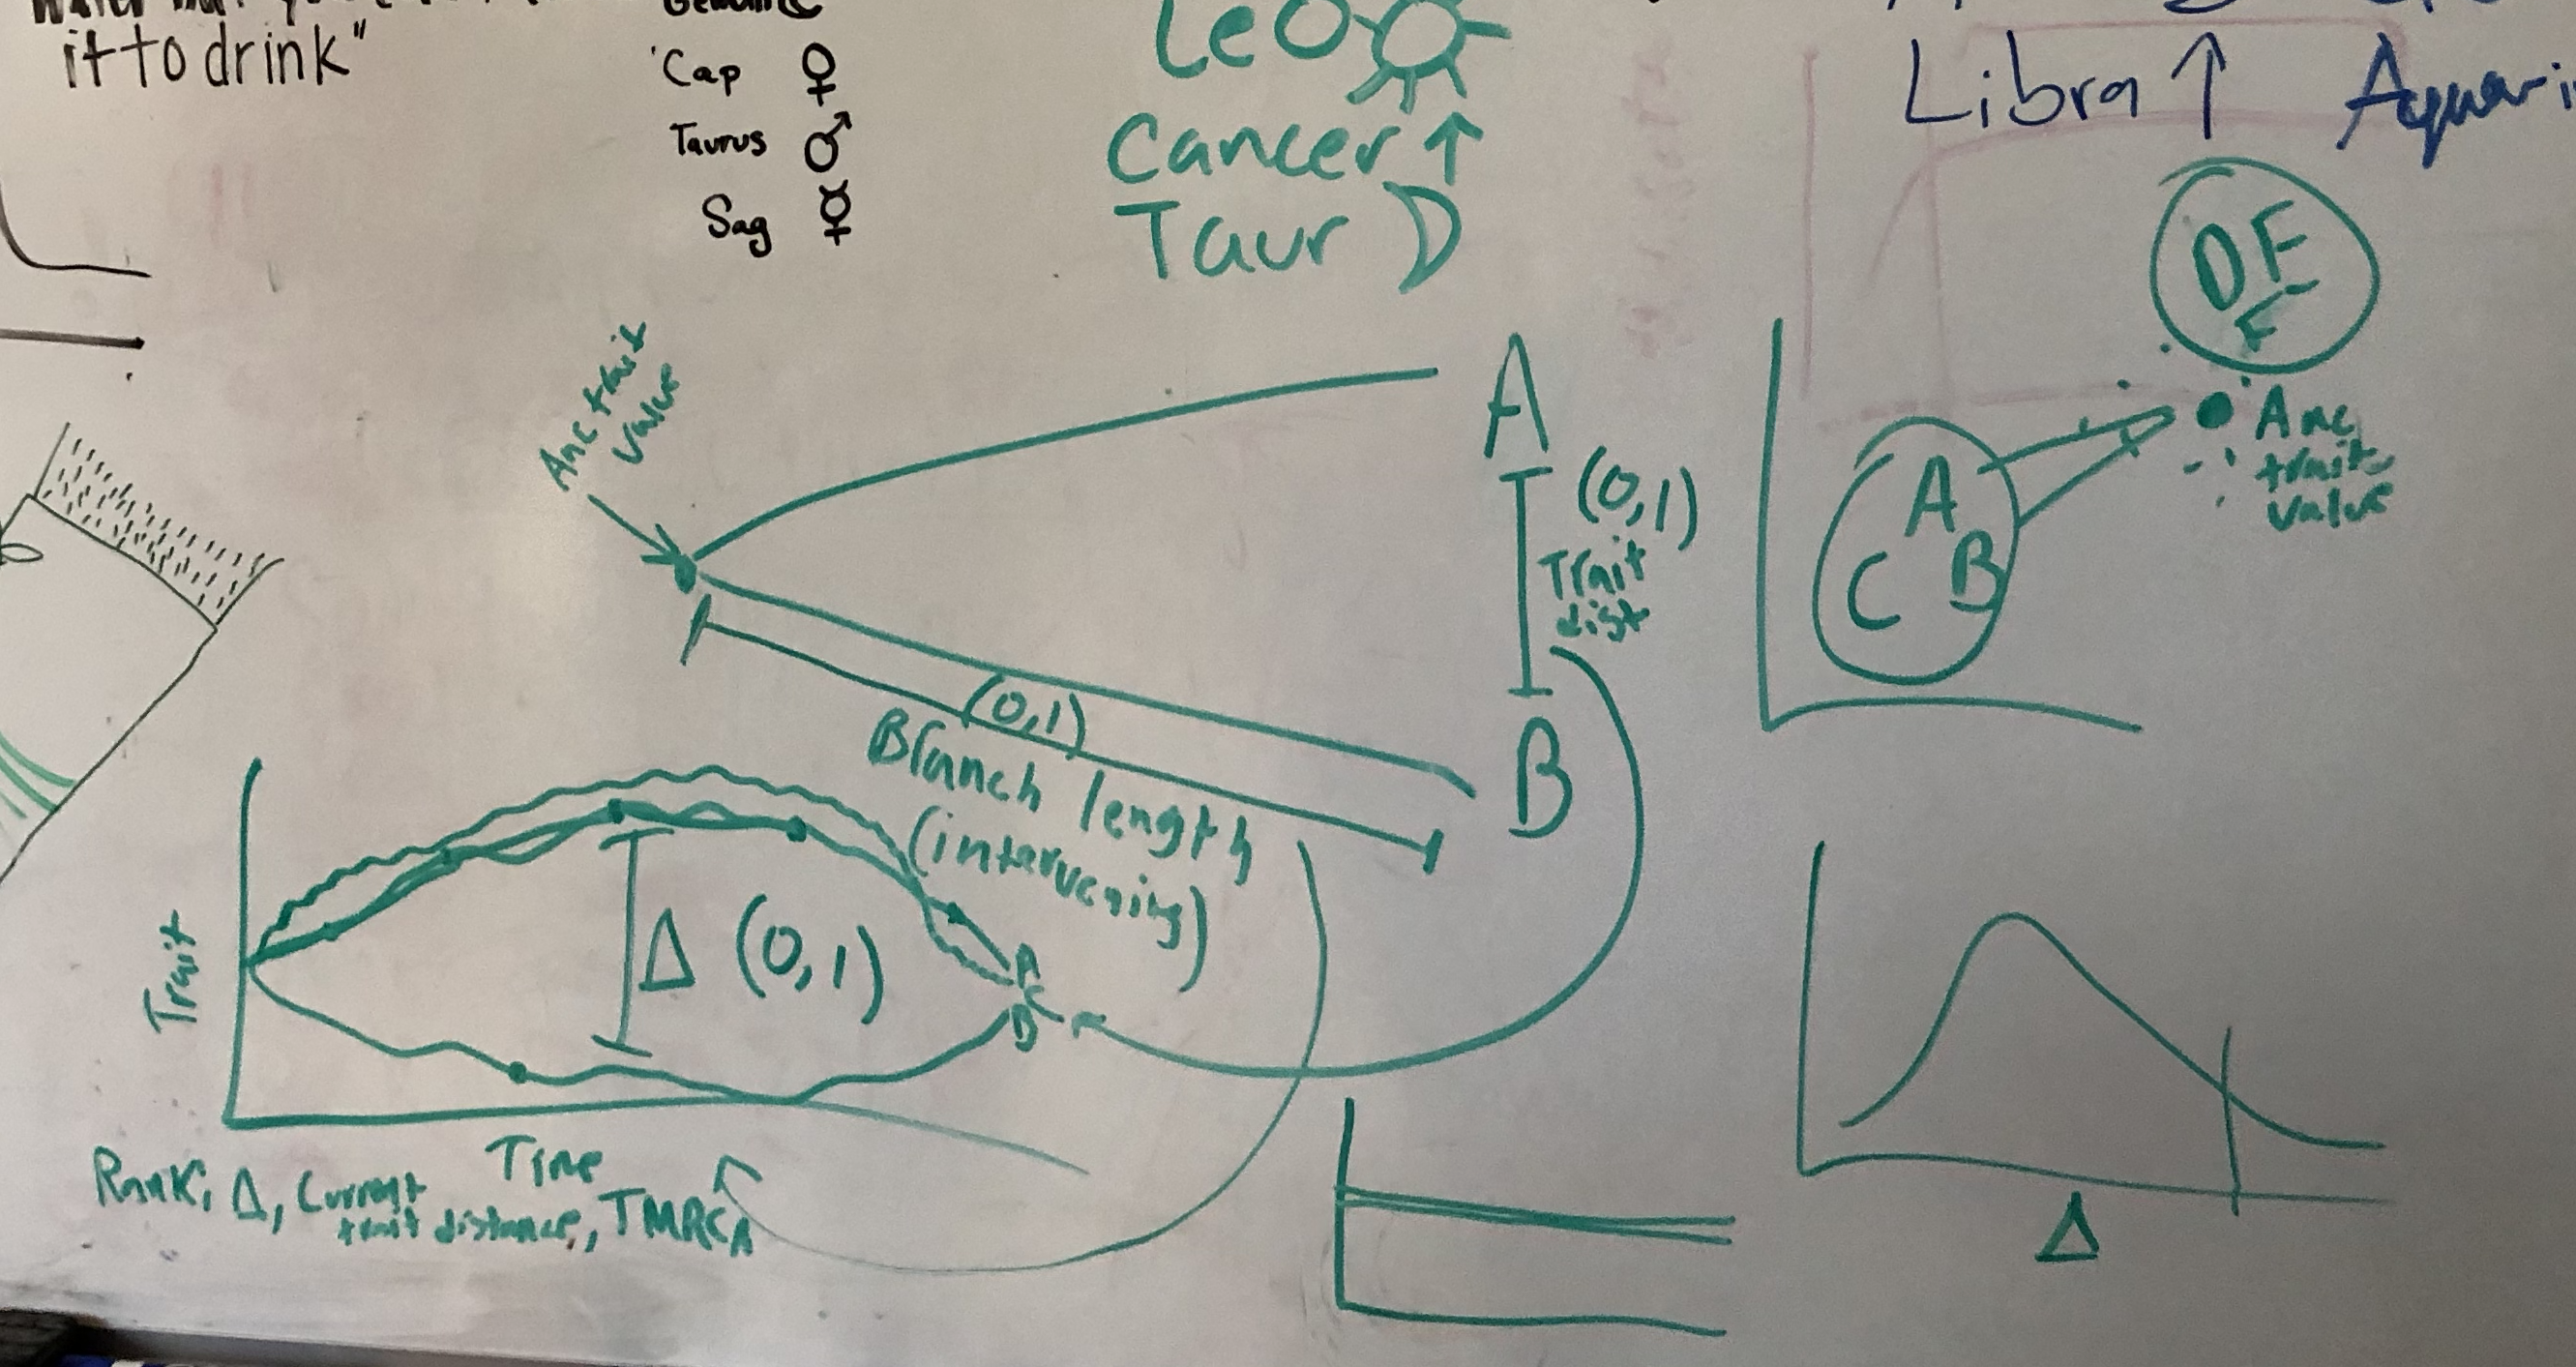 it to drink"
Cap ♀
Taurus ♂
Sag ☿
Leo
Cancer ↑
Taur
Libra ↑
Anc trait
value
A
(0,1)
Trait
dist
B
(0,1)
Branch length
(intervening)
DF
A
B
C
Anc
trait
value
Trait
Δ (0,1)
A
C
B
Time
Rank, Δ, Current
trait distance, TMRCA
Δ